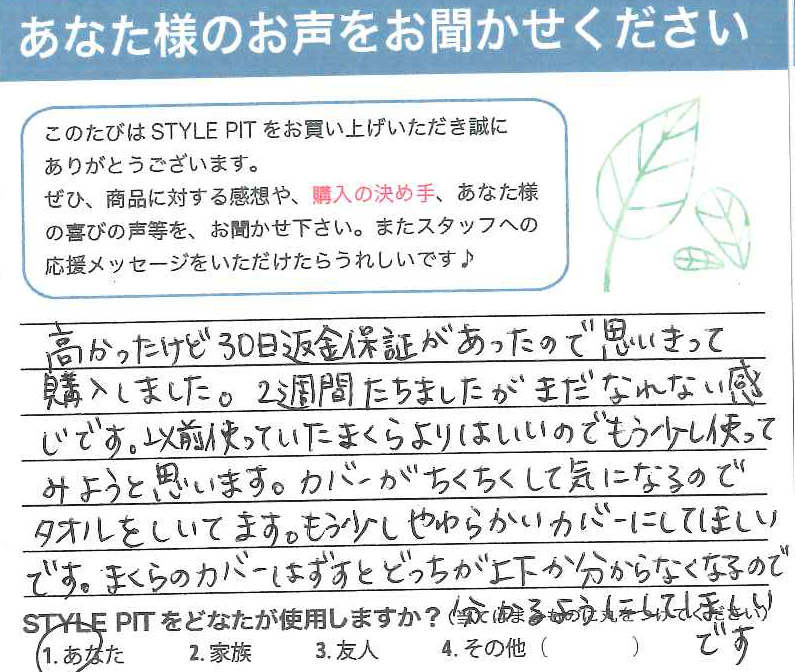 あなた様のお声をお聞かせください
このたびは STYLE PIT をお買い上げいただき誠に
ありがとうございます。
ぜひ、商品に対する感想や、購入の決め手、あなた様
の喜びの声等を、お聞かせ下さい。またスタッフへの
応援メッセージをいただけたらうれしいです♪
高かったけど30日返金保証があったので思いきって
購入しました。2週間たちましたがまだなれない感
じです。以前使っていたまくらよりはいいのでもう少し使って
みようと思います。カバーがちくちくして気になるので
タオルをしいてます。もう少しやわらかいカバーにしてほしい
です。まくらのカバーはずすとどっちが上下か分からなくなるので
分かるようにしてほしい
です
STYLE PIT をどなたが使用しますか？(当てはまるものに丸をつけてください)
1. あなた 2. 家族 3. 友人 4. その他 ( )